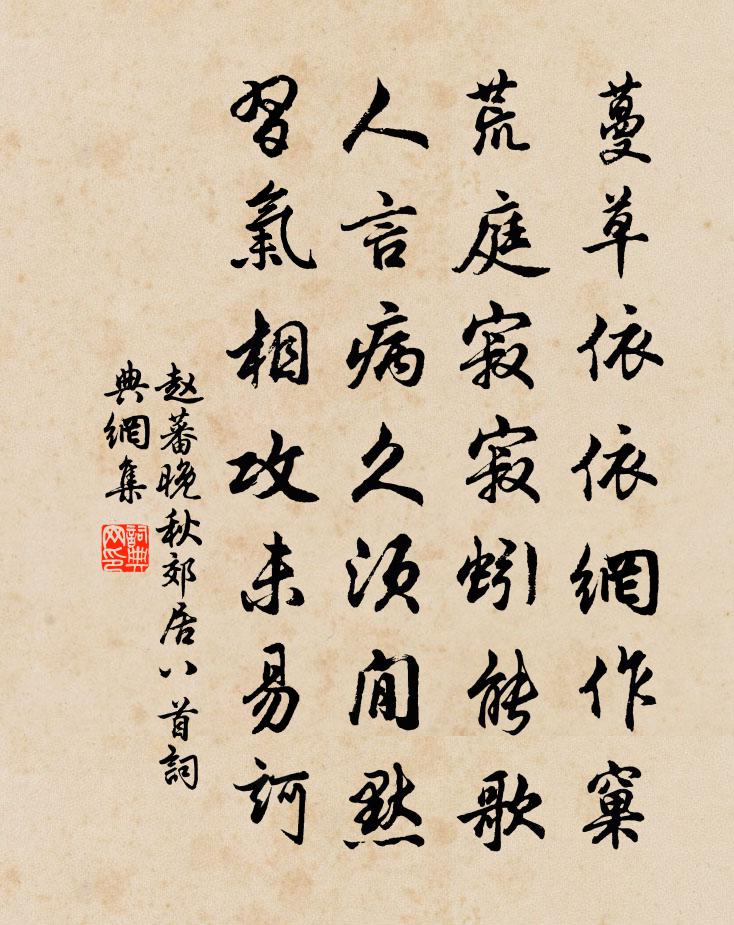 蔓草依依網作窠
荒庭寂寂蚓能歌
人言病久須閒默
習氣相攻未易訶
赵蕃晚秋郊居八首詞
典網集
詞典
网印